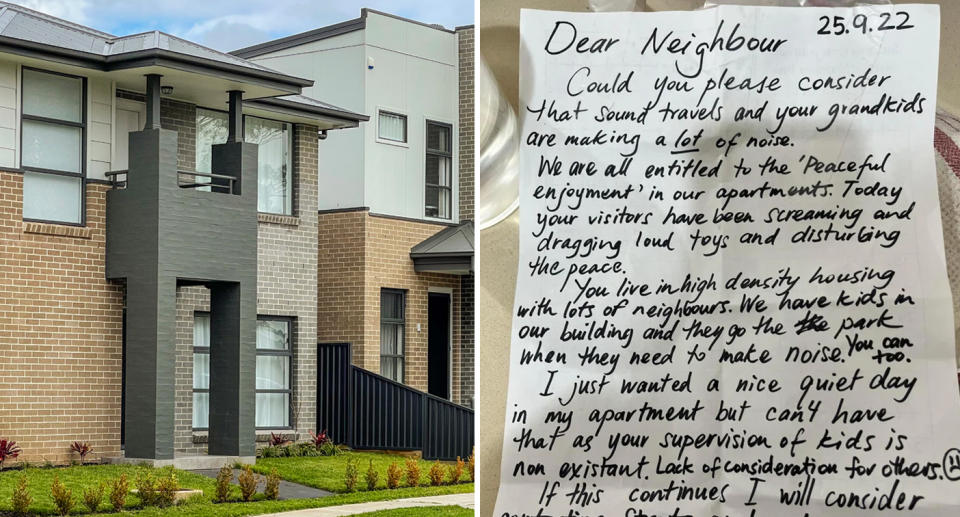 25.9.22
Dear Neighbour
Could you please consider
that sound travels and your grandkids
are making a lot of noise.
We are all entitled to the 'Peaceful
enjoyment' in our apartments. Today
your visitors have been screaming and
dragging loud toys and disturbing
the peace.
You live in high density housing
with lots of neighbours. We have kids in
our building and they go the the park
when they need to make noise. You can
too.
I just wanted a nice quiet day
in my apartment but can't have
that as your supervision of kids is
non existant. Lack of consideration for others.
If this continues I will consider